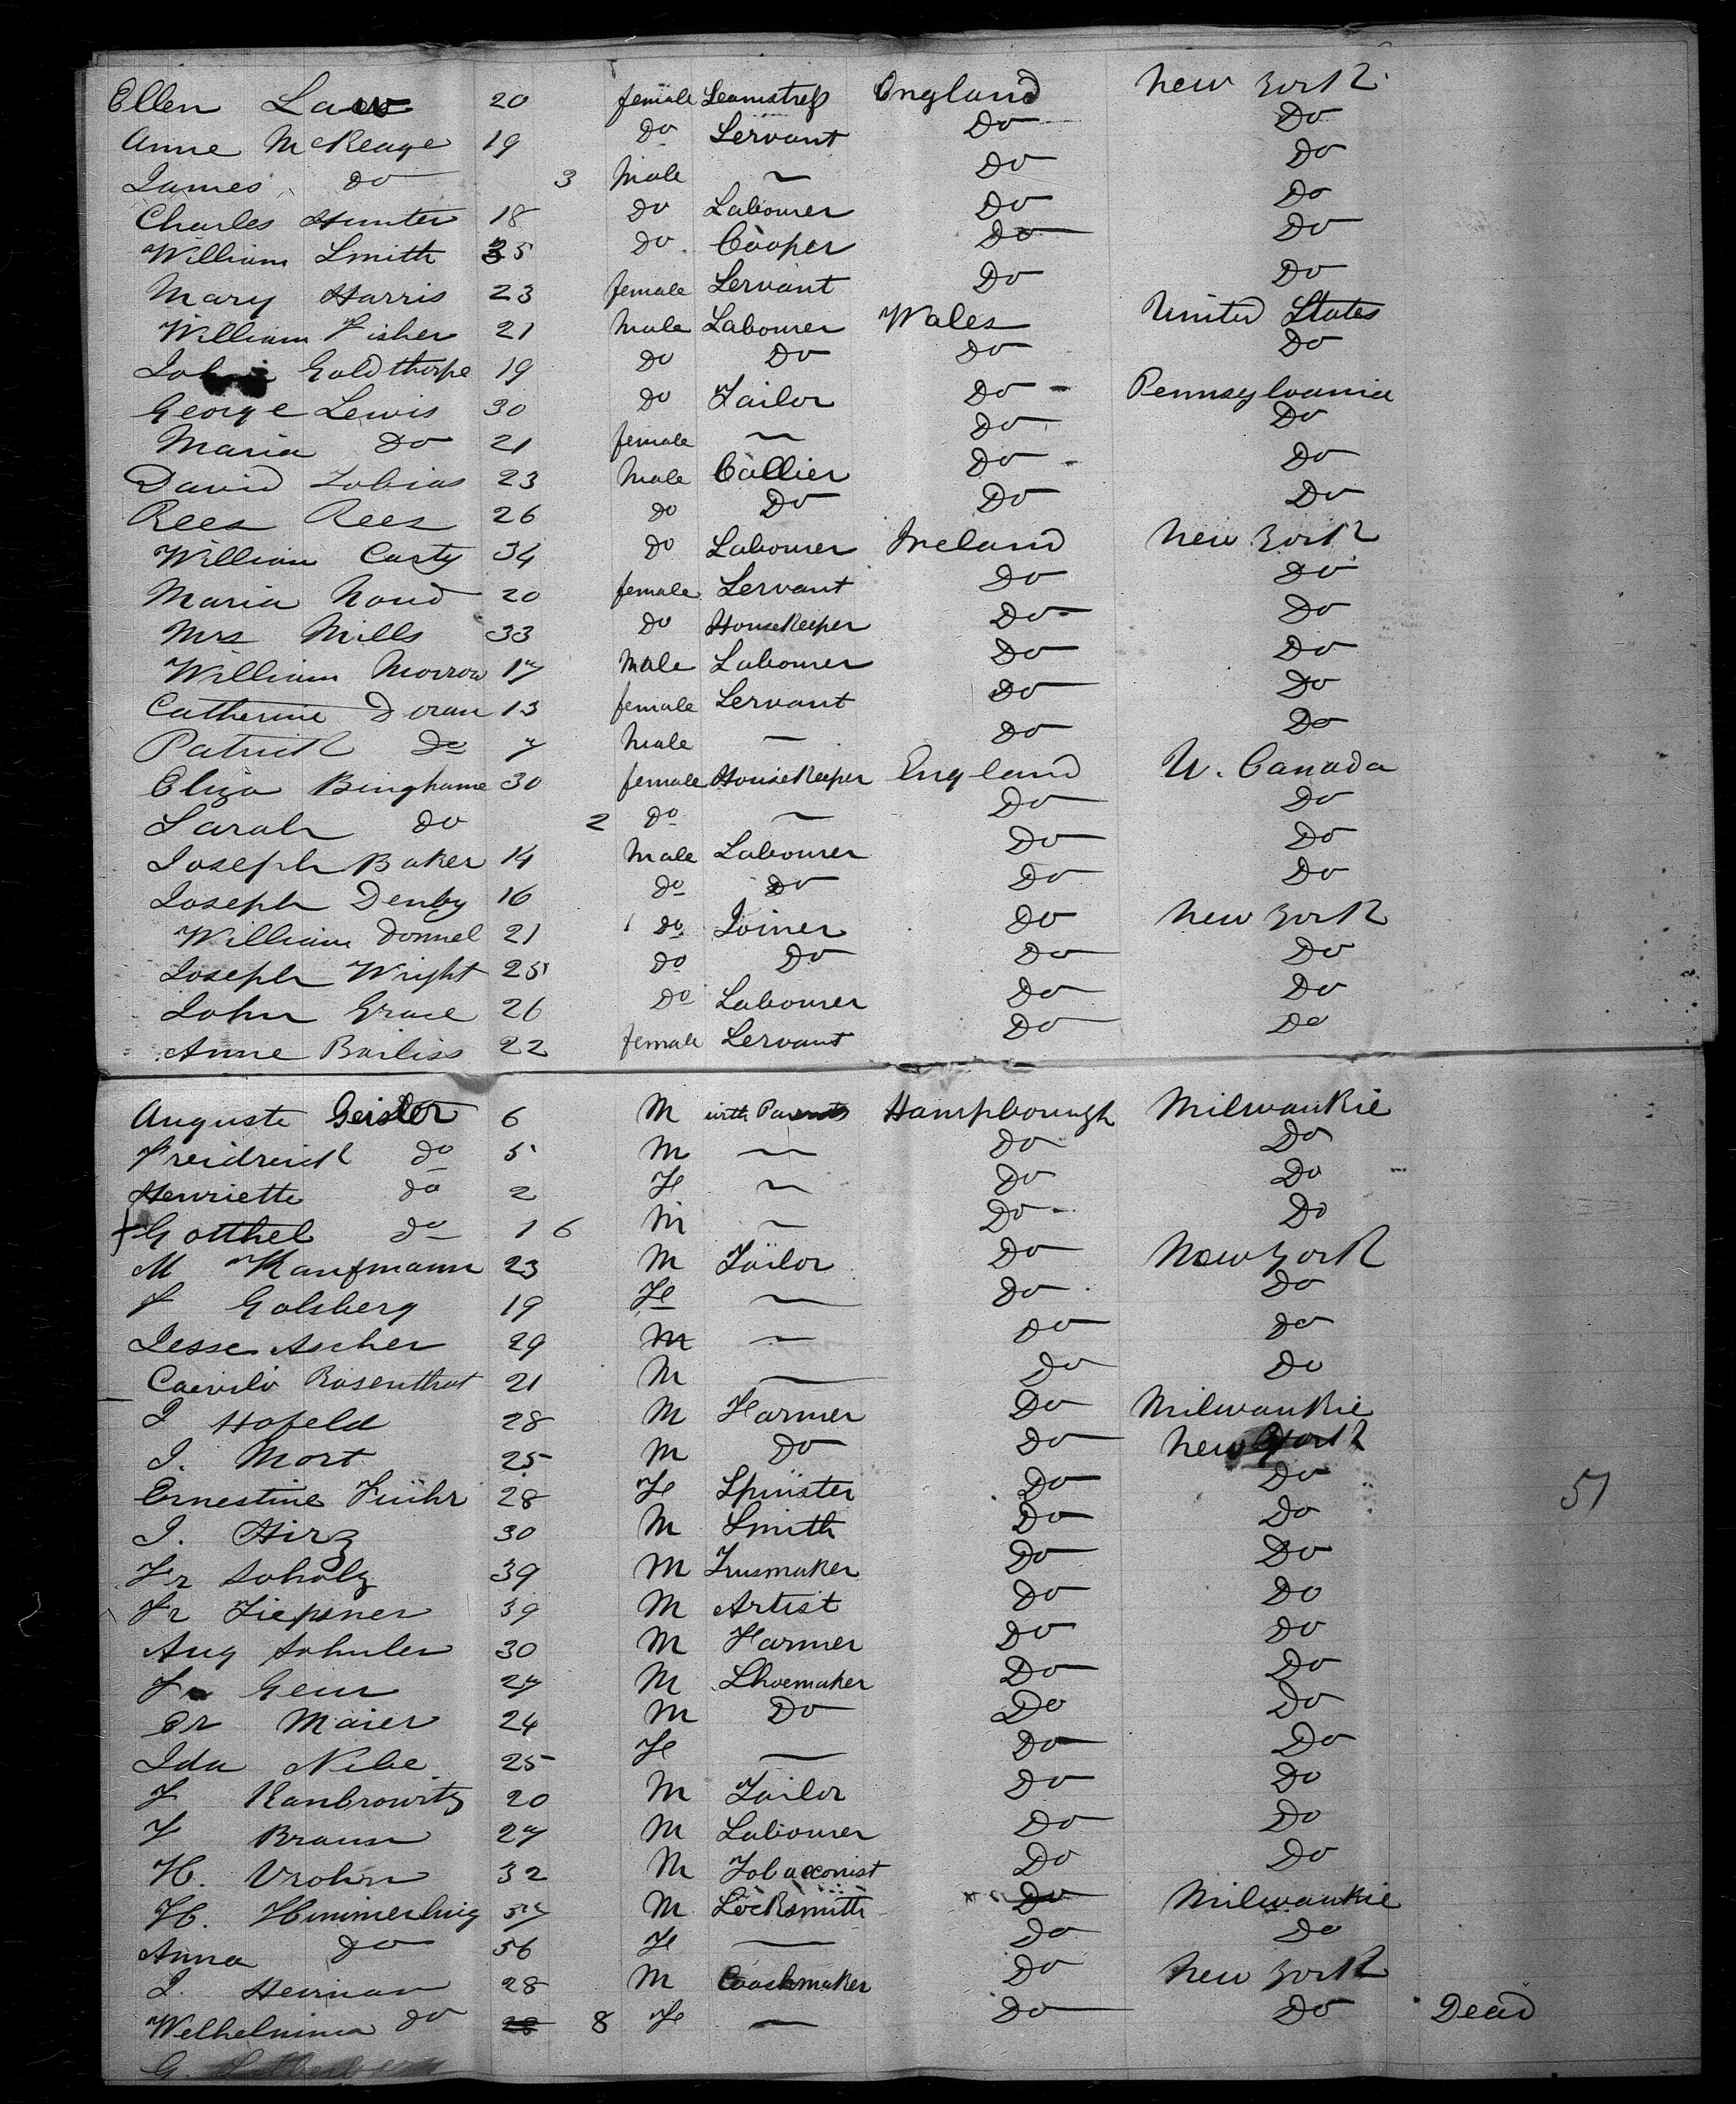 Ellen Law 20 female Seamstress England New York
Anne McKeage 19 Do Servant Do Do
James Do 3 Male ~ Do Do
Charles Hunter 18 Do Labourer Do Do
William Smith 35 Do Cooper Do Do
Mary Harris 23 female Servant Do Do
William Fisher 21 Male Labourer Wales United States
John Goldthorpe 19 Do Do Do Do
George Lewis 30 Do Tailor Do Pennsylvania
Maria Do 21 female ~ Do Do
David Tobias 23 Male Collier Do Do
Rees Rees 26 Do Do Do Do
William Carty 34 Do Labourer Ireland New York
Maria 20 female Servant Do Do
Mrs Mills 33 Do HouseKeeper Do Do
William Morrow 17 Male Labourer Do Do
Catherine Doran 13 female Servant Do Do
Patrick Do 7 Male — Do Do
Eliza Binghame 30 female HouseKeeper England U. Canada
Sarah Do 2 Do ~ Do Do
Joseph Baker 14 Male Labourer Do Do
Joseph Denby 16 Do Do Do Do
William Donnel 21 Do Joiner Do New York
Joseph Wright 25 Do Do Do Do
John Grace 26 Do Labourer Do Do
Anne Bailiss 22 female Servant Do Do
Auguste Geisler 6 M with Parents Hampborough Milwaukie
Freidreick Do 5 M ~ Do Do
Henriette Do 2 Fe ~ Do Do
+ Gotthel Do 1 6 M ~ Do Do
M Kaufmann 23 M Tailor Do New York
F Golsberg 19 Fe ~ Do Do
Jesse Ascher 29 M ~ Do Do
Rosenthat 21 M — Do Do
J Hofeld 28 M Farmer Do Milwaukie
J. Mort 25 M Do Do New York
Ernestine Führ 28 Fe Spinster Do Do 51
J. Hirz 30 M Smith Do Do
Fr Scholz 39 M Do Do
Fr Tiepsner 39 M Artist Do Do
Aug Schuler 30 M Farmer Do Do
F Geur 27 M Shoemaker Do Do
Er Maier 24 M Do Do Do
Ida Nibe 25 Fe — Do Do
F Kanbrowitz 20 M Tailor Do Do
F Braun 27 M Labourer Do Do
H. Vrohn 32 M Tobacconist Do Do
H. Himmerling 57 M Locksmith Do Milwaukie
Anna Do 56 Fe — Do Do
J. Heiman 28 M Coachmaker Do New York
Welhelmina Do 28 8 Fe — Do Do Dead
G.